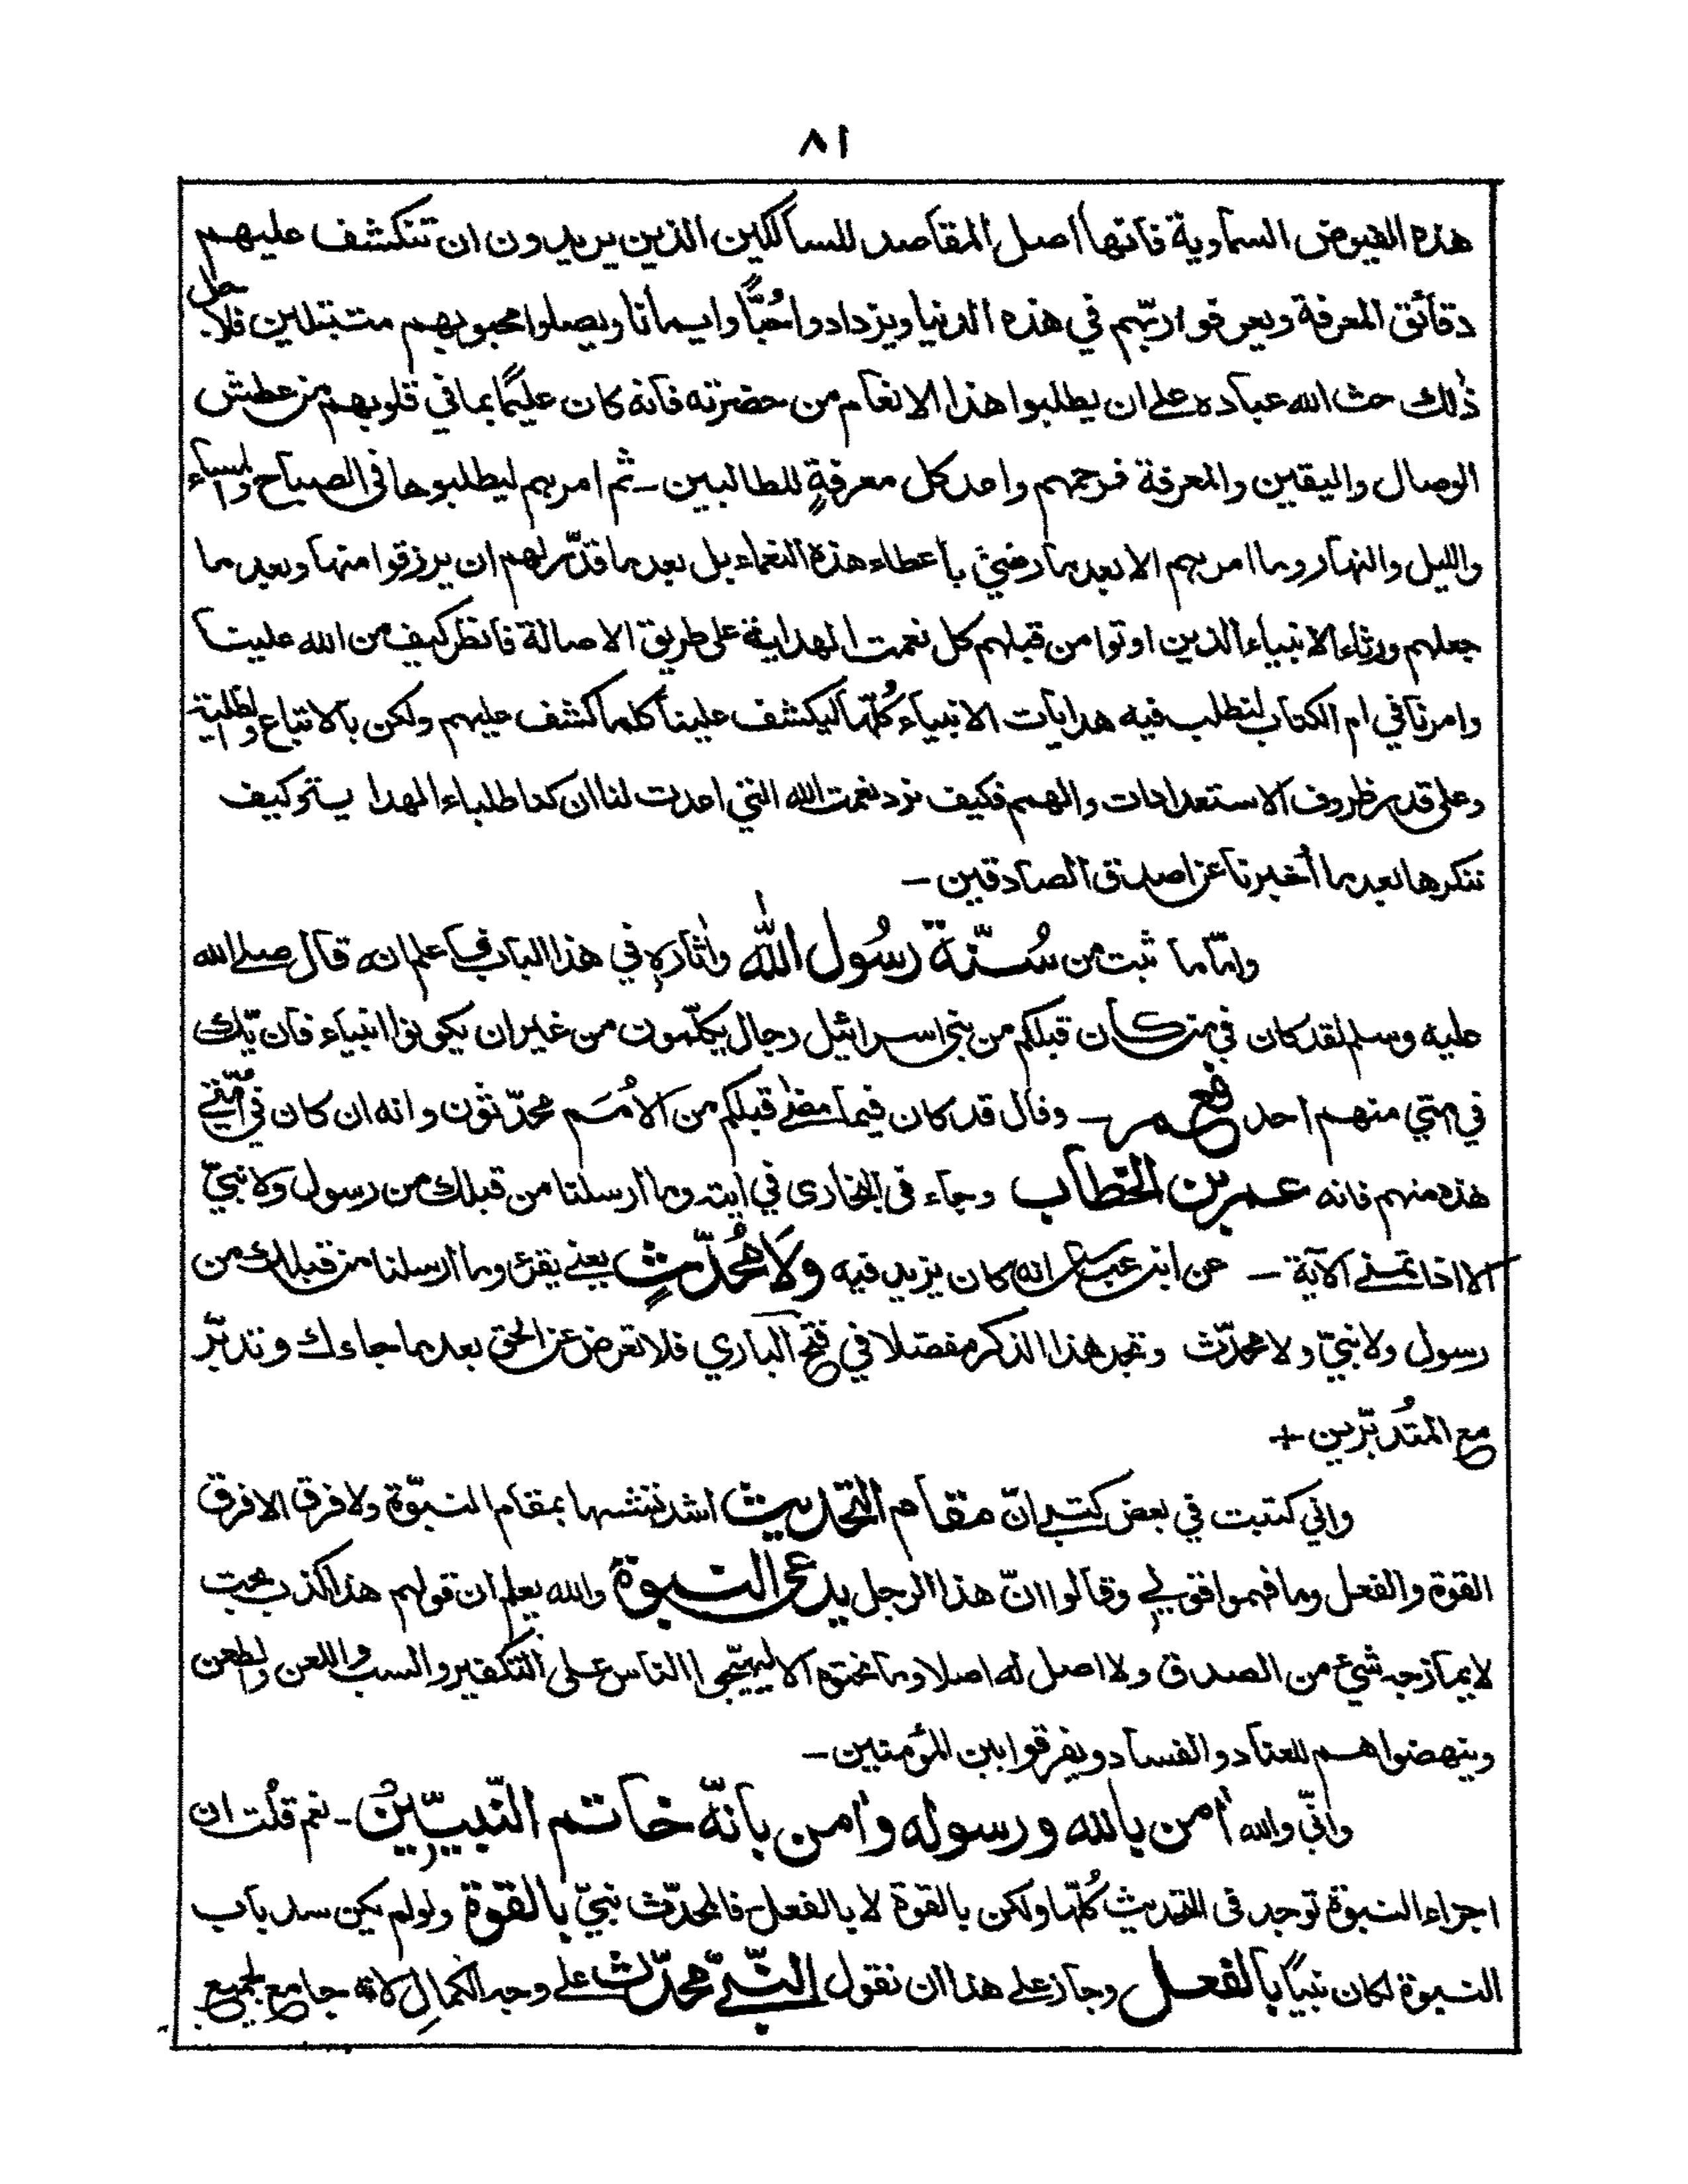 ٨١
هذه الفيوض السماوية فانها اصل المقاصد للسالكين الذين يريدون ان تنكشف عليهم
دقائق المعرفة ويعرفوا ربّهم في هذه الدنيا ويزدادوا حُبًّا وايمانا ويصلوا محبوبهم متبتلين فلاجل
ذٰلك حث الله عباده على ان يطلبوا هذا الانعام من حضرته فانه كان عليمًا بما في قلوبهم من عطش
الوصال واليقين والمعرفة فرحمهم واعد كل معرفةٍ للطالبين – ثم امرهم ليطلبوها فى الصباح والمساء
والليل والنهار وما امرهم الا بعد ما رضي باعطاء هذه النعماء بل بعد ما قدّر لهم ان يرزقوا منها وبعد ما
جعلهم ورثاء الانبياء الذين اوتوا من قبلهم كل نعمت الهداية على طريق الاصالة فانظر كيف من الله علينا
وامرنا في ام الكتاب لنطلب فيه هدايات الانبياء كُلّها ليكشف علينا كلما كشف عليهم ولكن بالاتباع والظلية
وعلى قدر ظروف الاستعدادات والهمم فكيف نرد نعمت الله التي اعدت لنا ان كنا طلباء الهدا يت وكيف
ننكرها بعد ما أخبرنا عن اصدق الصادقين –
وامّا ما ثبت من سُنّة رسُول اللّٰه واٰثاره في هذا الباب فاعلم انه قال صلى الله
عليه وسلم لقد كان في من كان قبلكم من بنى اسرائيل رجال يكلّمون من غير ان يكونوا انبياء فان يّك
في امتي منهم احد فعمر – وقال قد كان فيما مضى قبلكم من الامُم محدّثون وانه ان كان في اُمّتي
هذه منهم فانه عمر بن الخطاب وجاء فى البخارى في اٰيته وما ارسلنا من قبلك من رسول ولا نبيّ
الا اذا تمنى الآية – عن ابن عباس انه كان يزيد فيه ولَا مُحدّثٍ يعني يقرئ وما ارسلنا من قبلك من
رسول ولا نبيّ ولا محدّث وتجد هذا الذكر مفصلا في فتح الباري فلا تعرض عن الحق بعد ما جاءك وتدبّر
مع المتُدبّرين +
واني كتبت في بعض كتبي انّ مقام التحديث اشد تشبها بمقام النبوّة ولا فرق الا فرق
القوة والفعل وما فهموا قولي وقالوا انّ هذا الرجل يدعى النبوة والله يعلم ان قولهم هذا كذب بحت
لا يمازجه شيء من الصدق ولا اصل له اصلا وما نحتوه الا ليهيّجوا الناس على التكفير والسب واللعن والطعن
وينهضواهم للعناد والفساد ويفرقوا بين المؤمنين –
وانّي والله اٰمن بالله ورسوله واٰمن بانّه خاتم النّبيّين – نعم قلت ان
اجزاء النبوة توجد فى التحديث كُلّها ولكن بالقوة لا بالفعل – فالمحدّث نبيّ بالقوة ولو لم يكن سد باب
النبوة لكان نبيًا بالفعل وجاز على هذا ان نقول النّبيّ محدّث على وجه الكمال لانه جامع لجميع